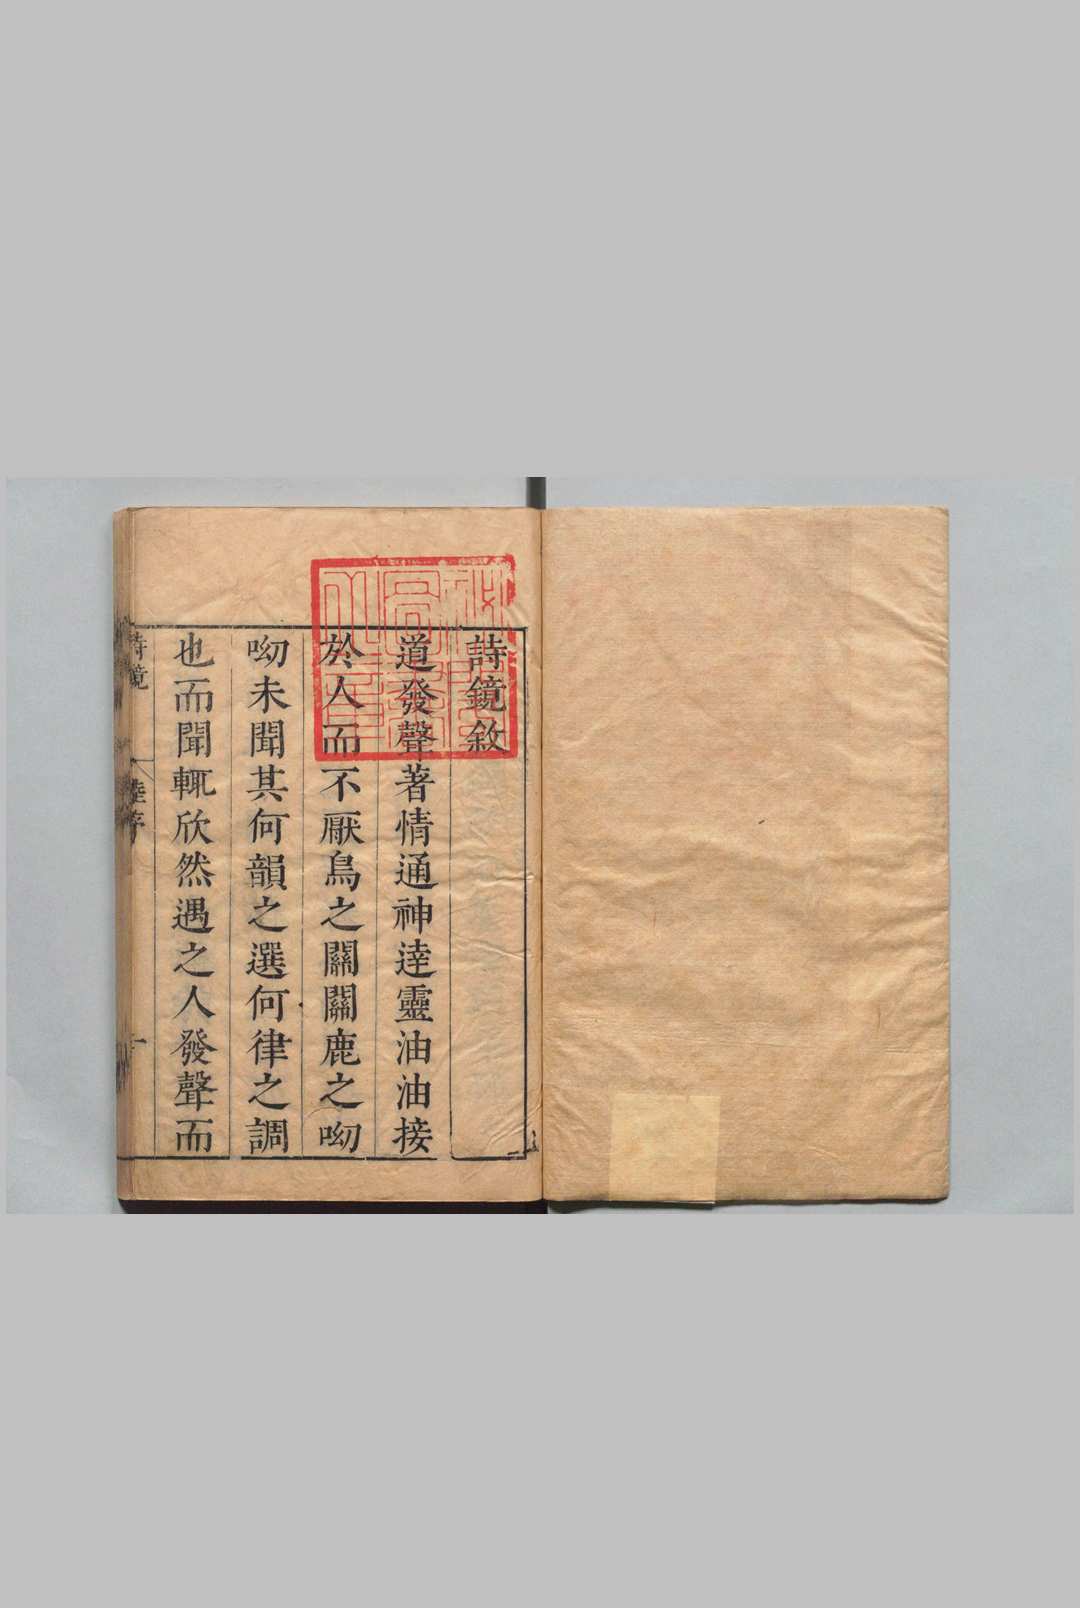 詩鏡敘
道發聲著情通神逹靈油油接
於人而不厭鳥之關關鹿之呦
呦未聞其何韻之選何律之調
也而聞輒欣然遇之人發聲而
詩鏡 陸序 一